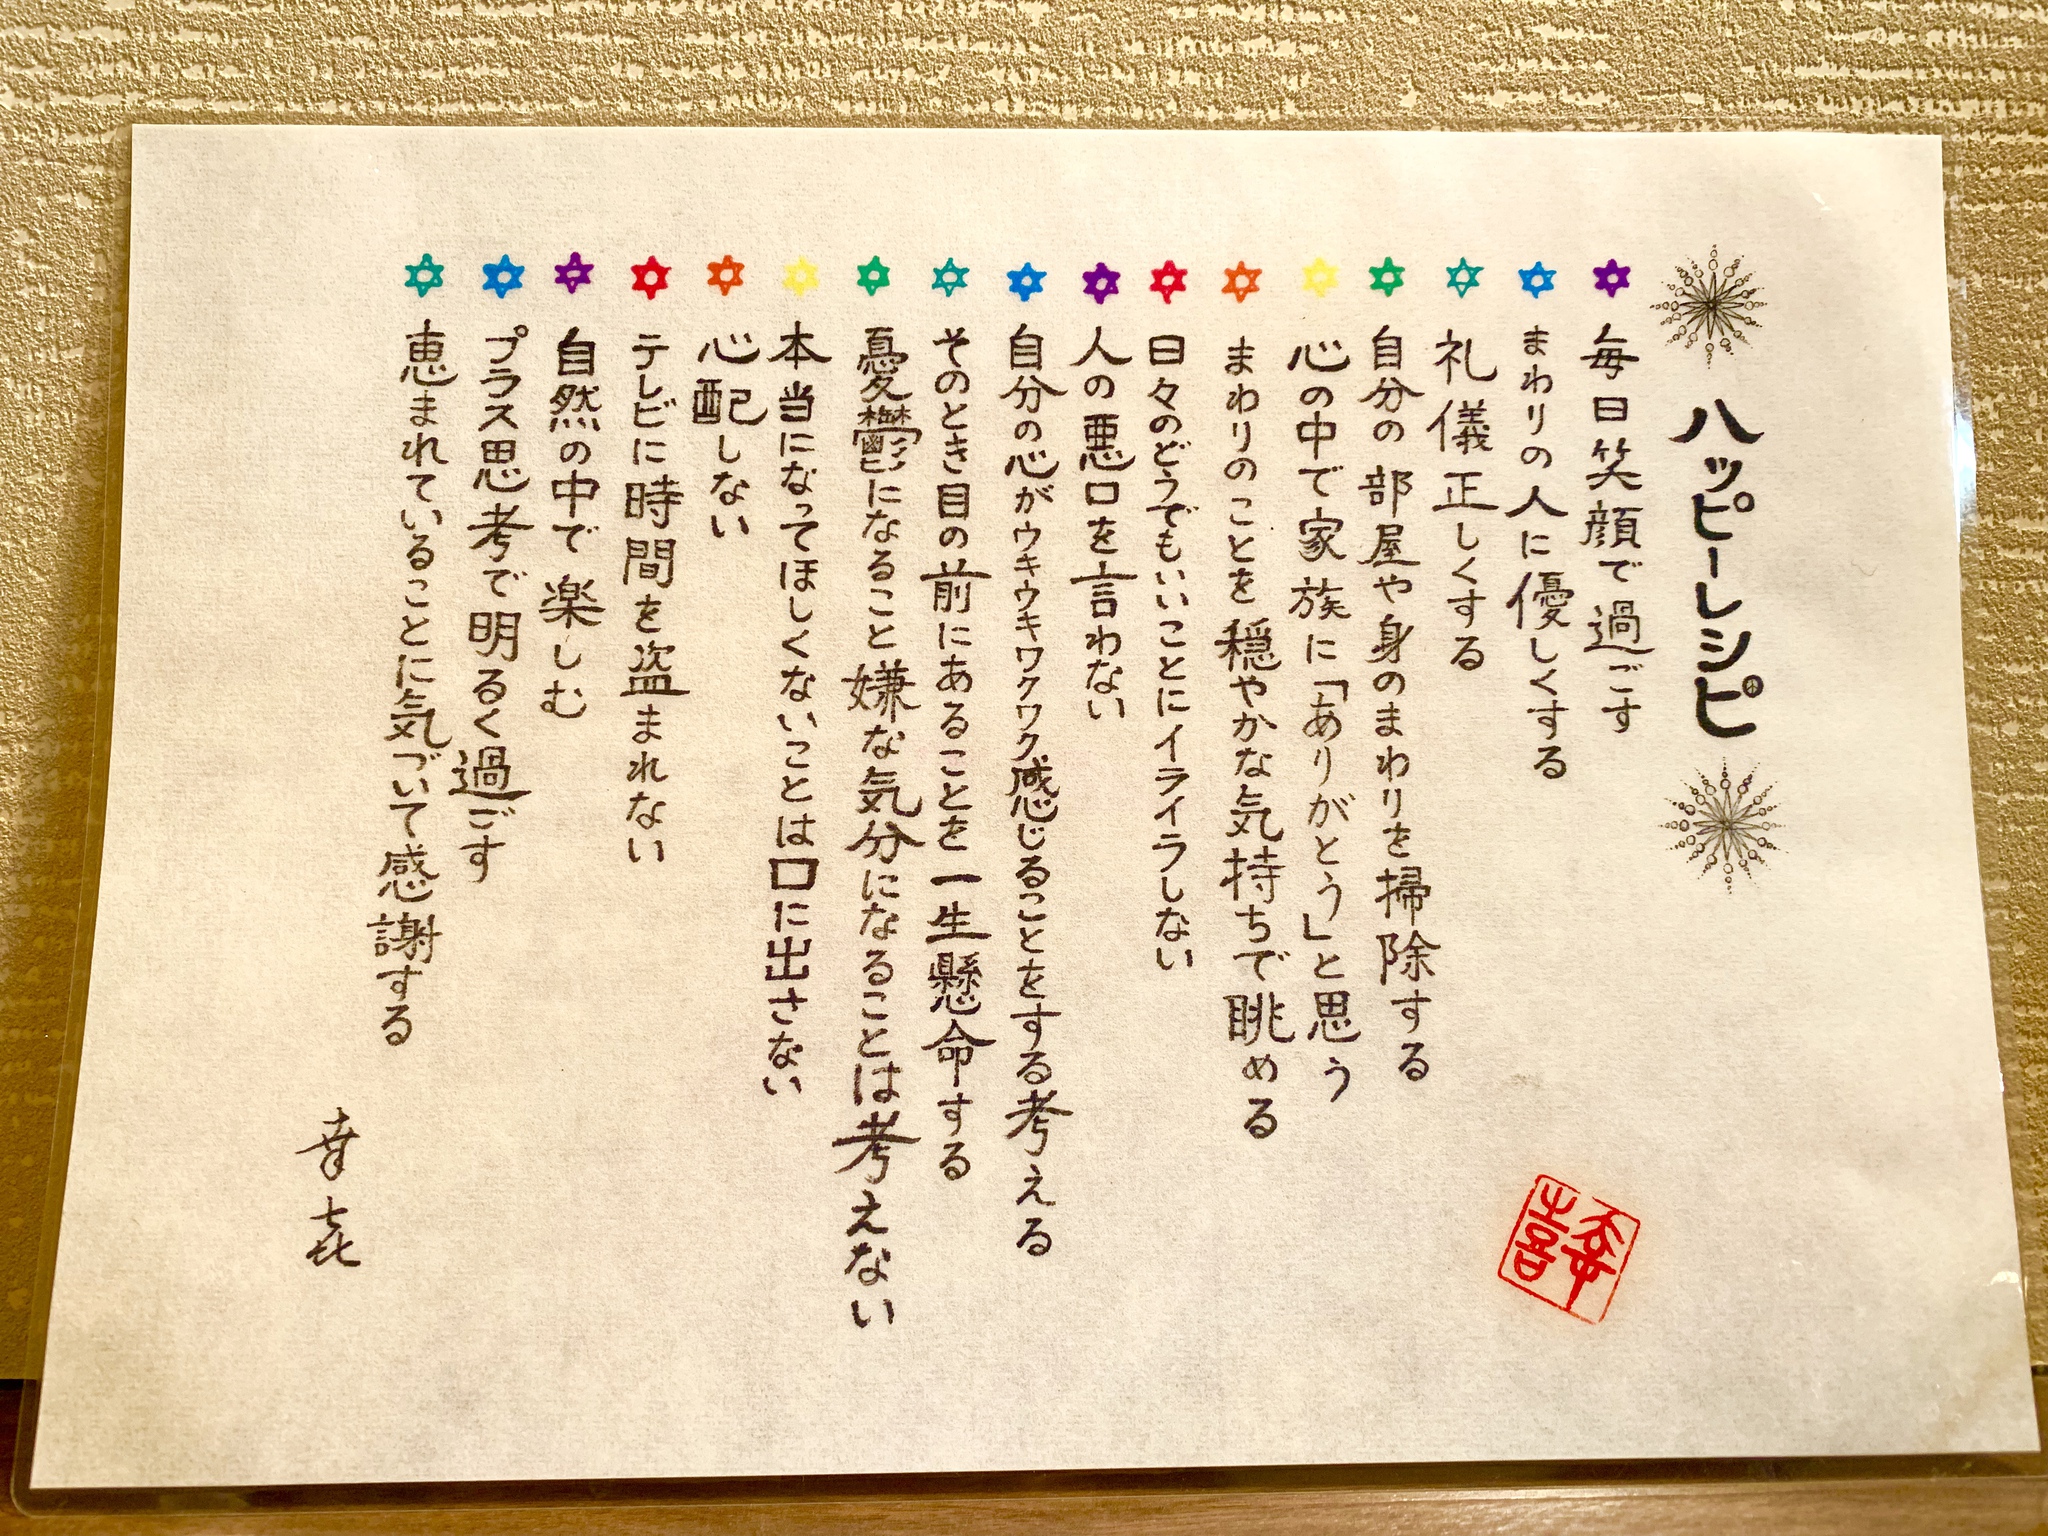 ハッピーレシピ
毎日笑顔で過ごす
まわりの人に優しくする
礼儀正しくする
自分の部屋や身のまわりを掃除する
心の中で家族に「ありがとう」と思う
まわりのことを穏やかな気持ちで眺める
日々のどうでもいいことにイライラしない
人の悪口を言わない
自分の心がウキウキワクワク感じることをする考える
そのとき目の前にあることを一生懸命する
憂鬱になること嫌な気分になることは考えない
本当になってほしくないことは口に出さない
心配しない
テレビに時間を盗まれない
自然の中で楽しむ
プラス思考で明るく過ごす
恵まれていることに気づいて感謝する
幸㐂
幸喜